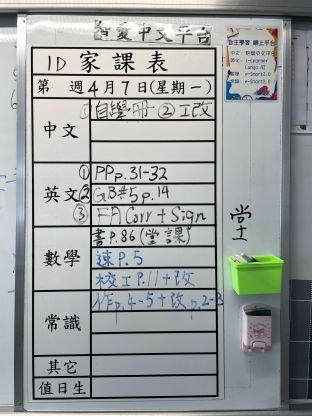 智愛中文平台
1D 家課表
第 週 4月7日(星期一)
中文 ①自學冊 ②工改
英文 ①PP p.31-32
②GB#5 p.14
③FA Corr + Sign
數學 書P.86(堂課)
速P.5
校工P.11+改
常識 p.4-5+改 p.2-3
其它
值日生
堂
自主學習 網上平台